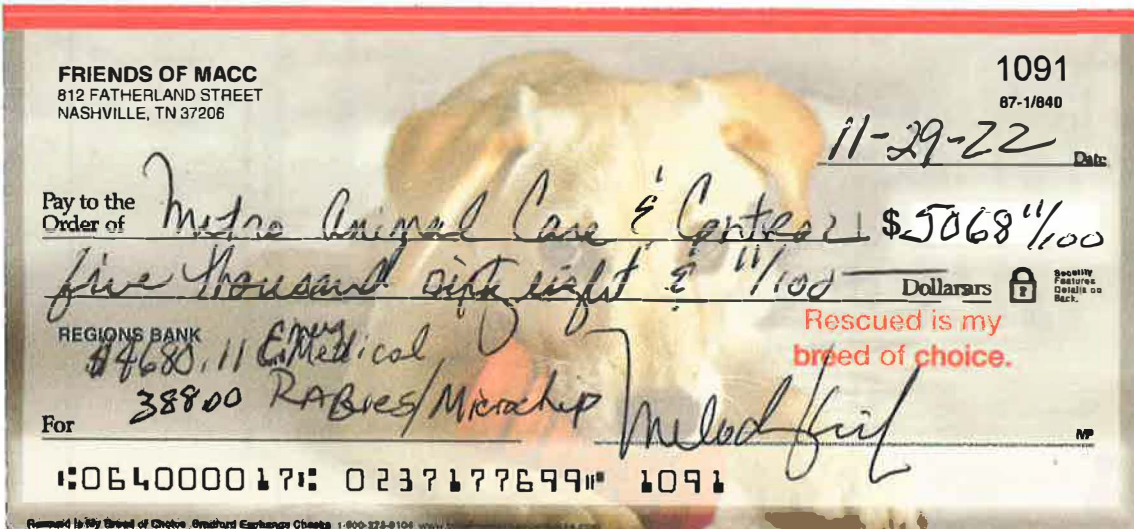 FRIENDS OF MACC
812 FATHERLAND STREET
NASHVILLE, TN 37206
1091
87-1/640
11-29-22 Date
Pay to the
Order of Metro Animal Care & Control $ 5068 11/100
five thousand sixty eight & 11/100 Dollars
Security
Features
Details on
Back.
Rescued is my
breed of choice.
REGIONS BANK
$4680.11 Emerg Medical
388.00 RABies/Microchip
For
MP
⑆064000017⑆ 0237177699⑈ 1091
Rescued is My Breed of Choice Bradford Exchange Checks 1-800-323-8104